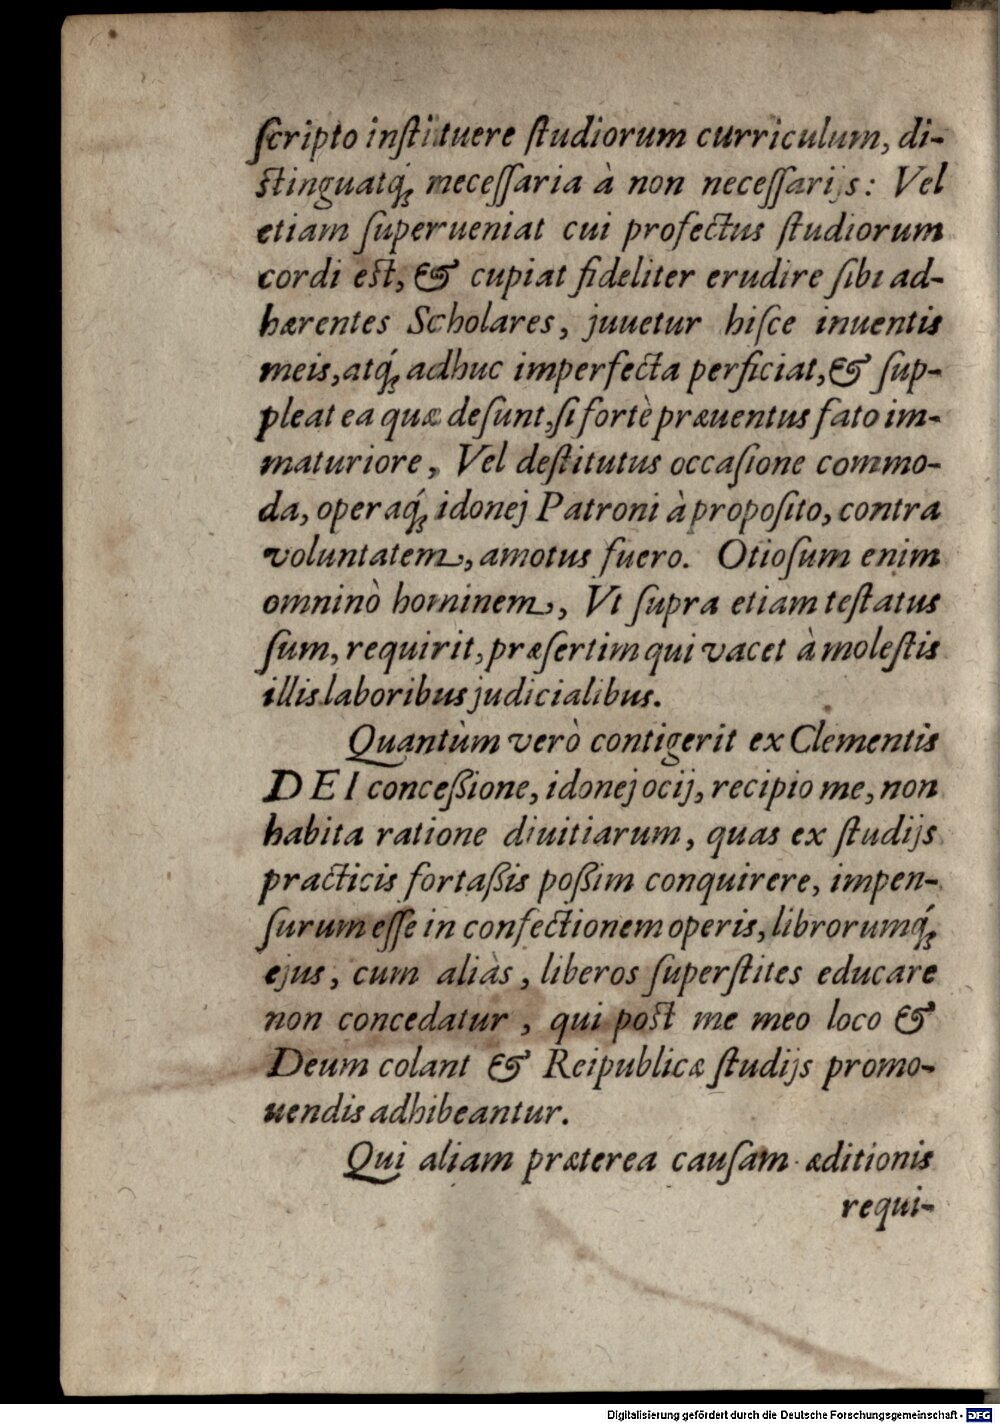 ſcripto inſtituere ſtudiorum curriculum, di-
ſtinguatq́; neceſſaria à non neceſſarijs: Vel
etiam ſuperueniat cui profectus ſtudiorum
cordi eſt, & cupiat fideliter erudire ſibi ad-
hærentes Scholares, juuetur hiſce inuentis
meis, atq́; adhuc imperfecta perficiat, & ſup-
pleat ea quæ deſunt, ſi fortè præuentus fato im-
maturiore, Vel deſtitutus occaſione commo-
da, operaq́; idonej Patroni à propoſito, contra
voluntatem, amotus fuero. Otioſum enim
omninò hominem, Vt ſupra etiam teſtatus
ſum, requirit, præſertim qui vacet à moleſtis
illis laboribus judicialibus.
Quantùm verò contigerit ex Clementis
DEI conceßione, idonej ocij, recipio me, non
habita ratione diuitiarum, quas ex ſtudijs
practicis fortaßis poßim conquirere, impen-
ſurum eſſe in confectionem operis, librorumq́;
ejus, cum aliàs, liberos ſuperſtites educare
non concedatur, qui poſt me meo loco &
Deum colant & Reipublicæ ſtudijs promo-
uendis adhibeantur.
Qui aliam præterea cauſam æditionis
requi-
Digitalisierung gefördert durch die Deutsche Forschungsgemeinschaft - DFG